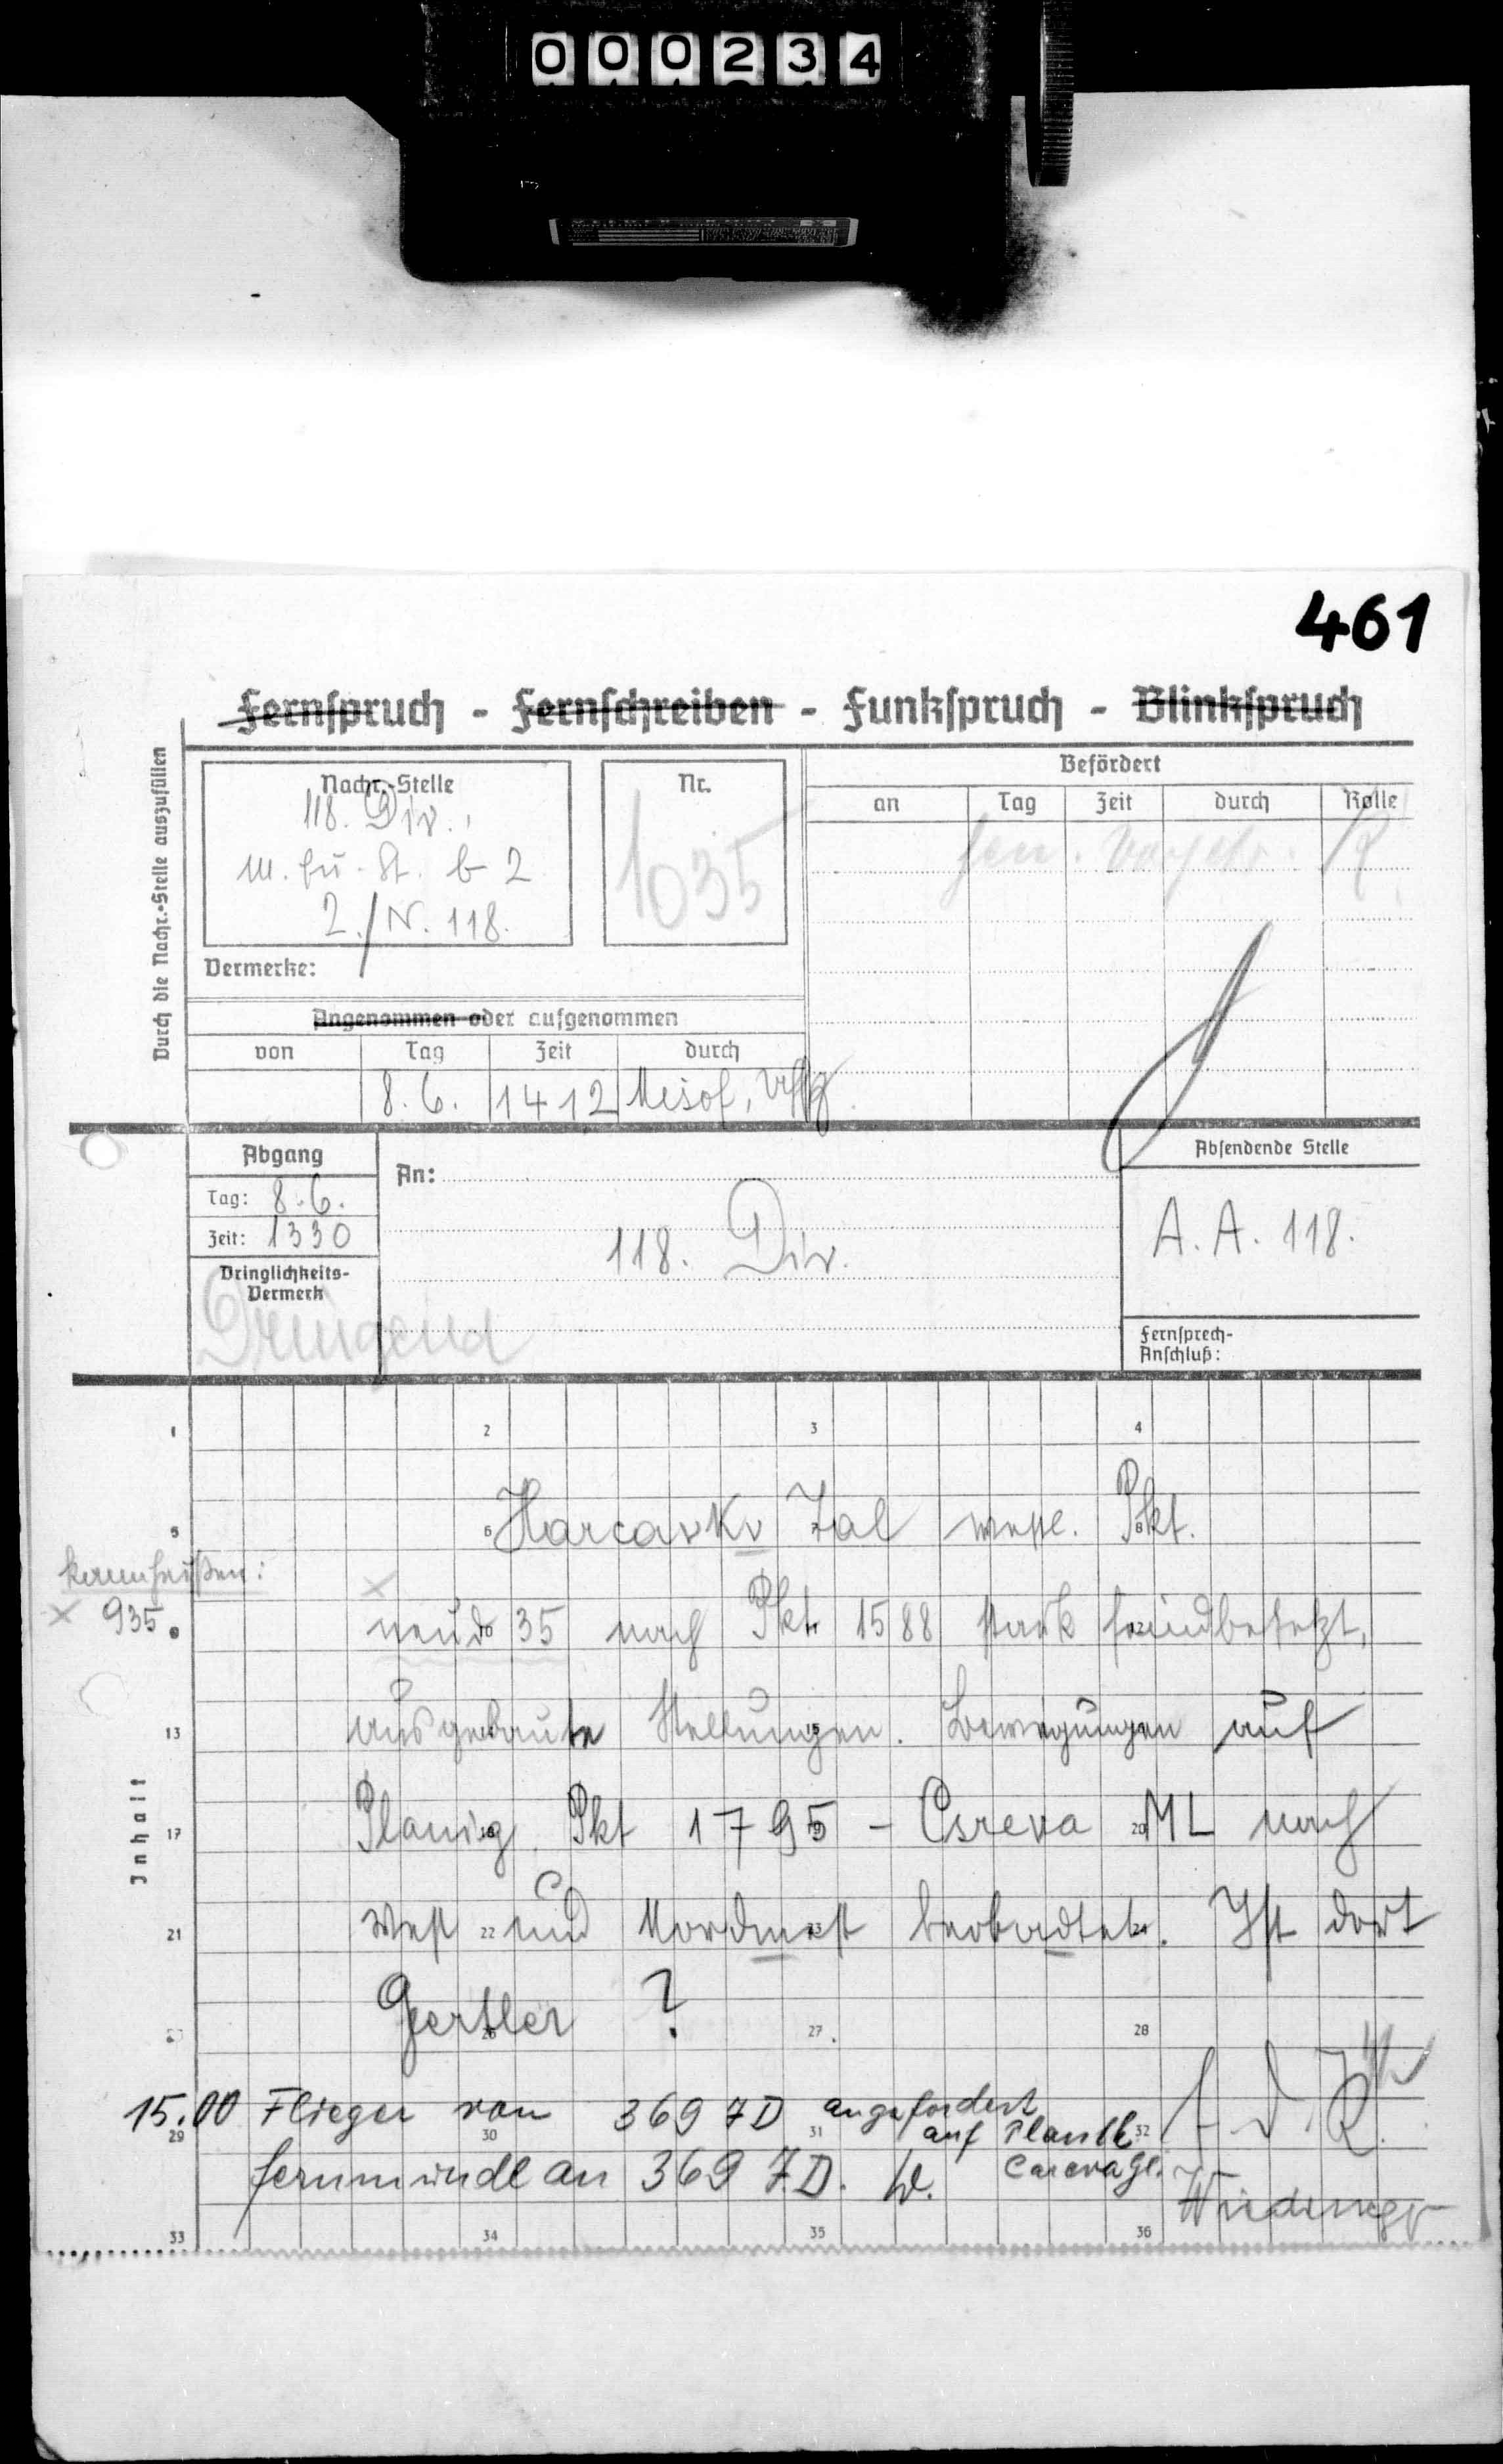 000234
461
Fernspruch - Fernschreiben - Funkspruch - Blinkspruch
Durch die Nachr.-Stelle auszufüllen
Nachr.-Stelle
118. Div.
m. Fu. St. b 2
2./N. 118.
Nr.
1035
Befördert
an Tag Zeit durch Rolle
Vermerke:
Angenommen oder aufgenommen
von Tag Zeit durch
8.6. 1412
Abgang
Tag: 8.6.
Zeit: 1330
Dringlichkeits-
Vermerk
Dringend
An:
118. Div.
Absendende Stelle
A. A. 118.
Fernsprech-
Anschluß:
Inhalt
1 2 3 4
Harcavkv Tal westl. Pkt.
5 6 8
kann heißen:
× 935
×
neud 35 nach Pkt 1588 stark feindbesetzt,
ausgebaute Stellungen. Bewegungen auf
13
Planig Pkt 1795 - Csreva ML nach
17 20
West und Nordwest beobachtet. Ist dort
21 22
Gertler ?
27 28
15.00 Flieger von 369 JD angefordert
auf Planik
Careva Gl.
29 30 31 32
fernmündl an 369 J.D. W.
f d R.
33 34 35 36